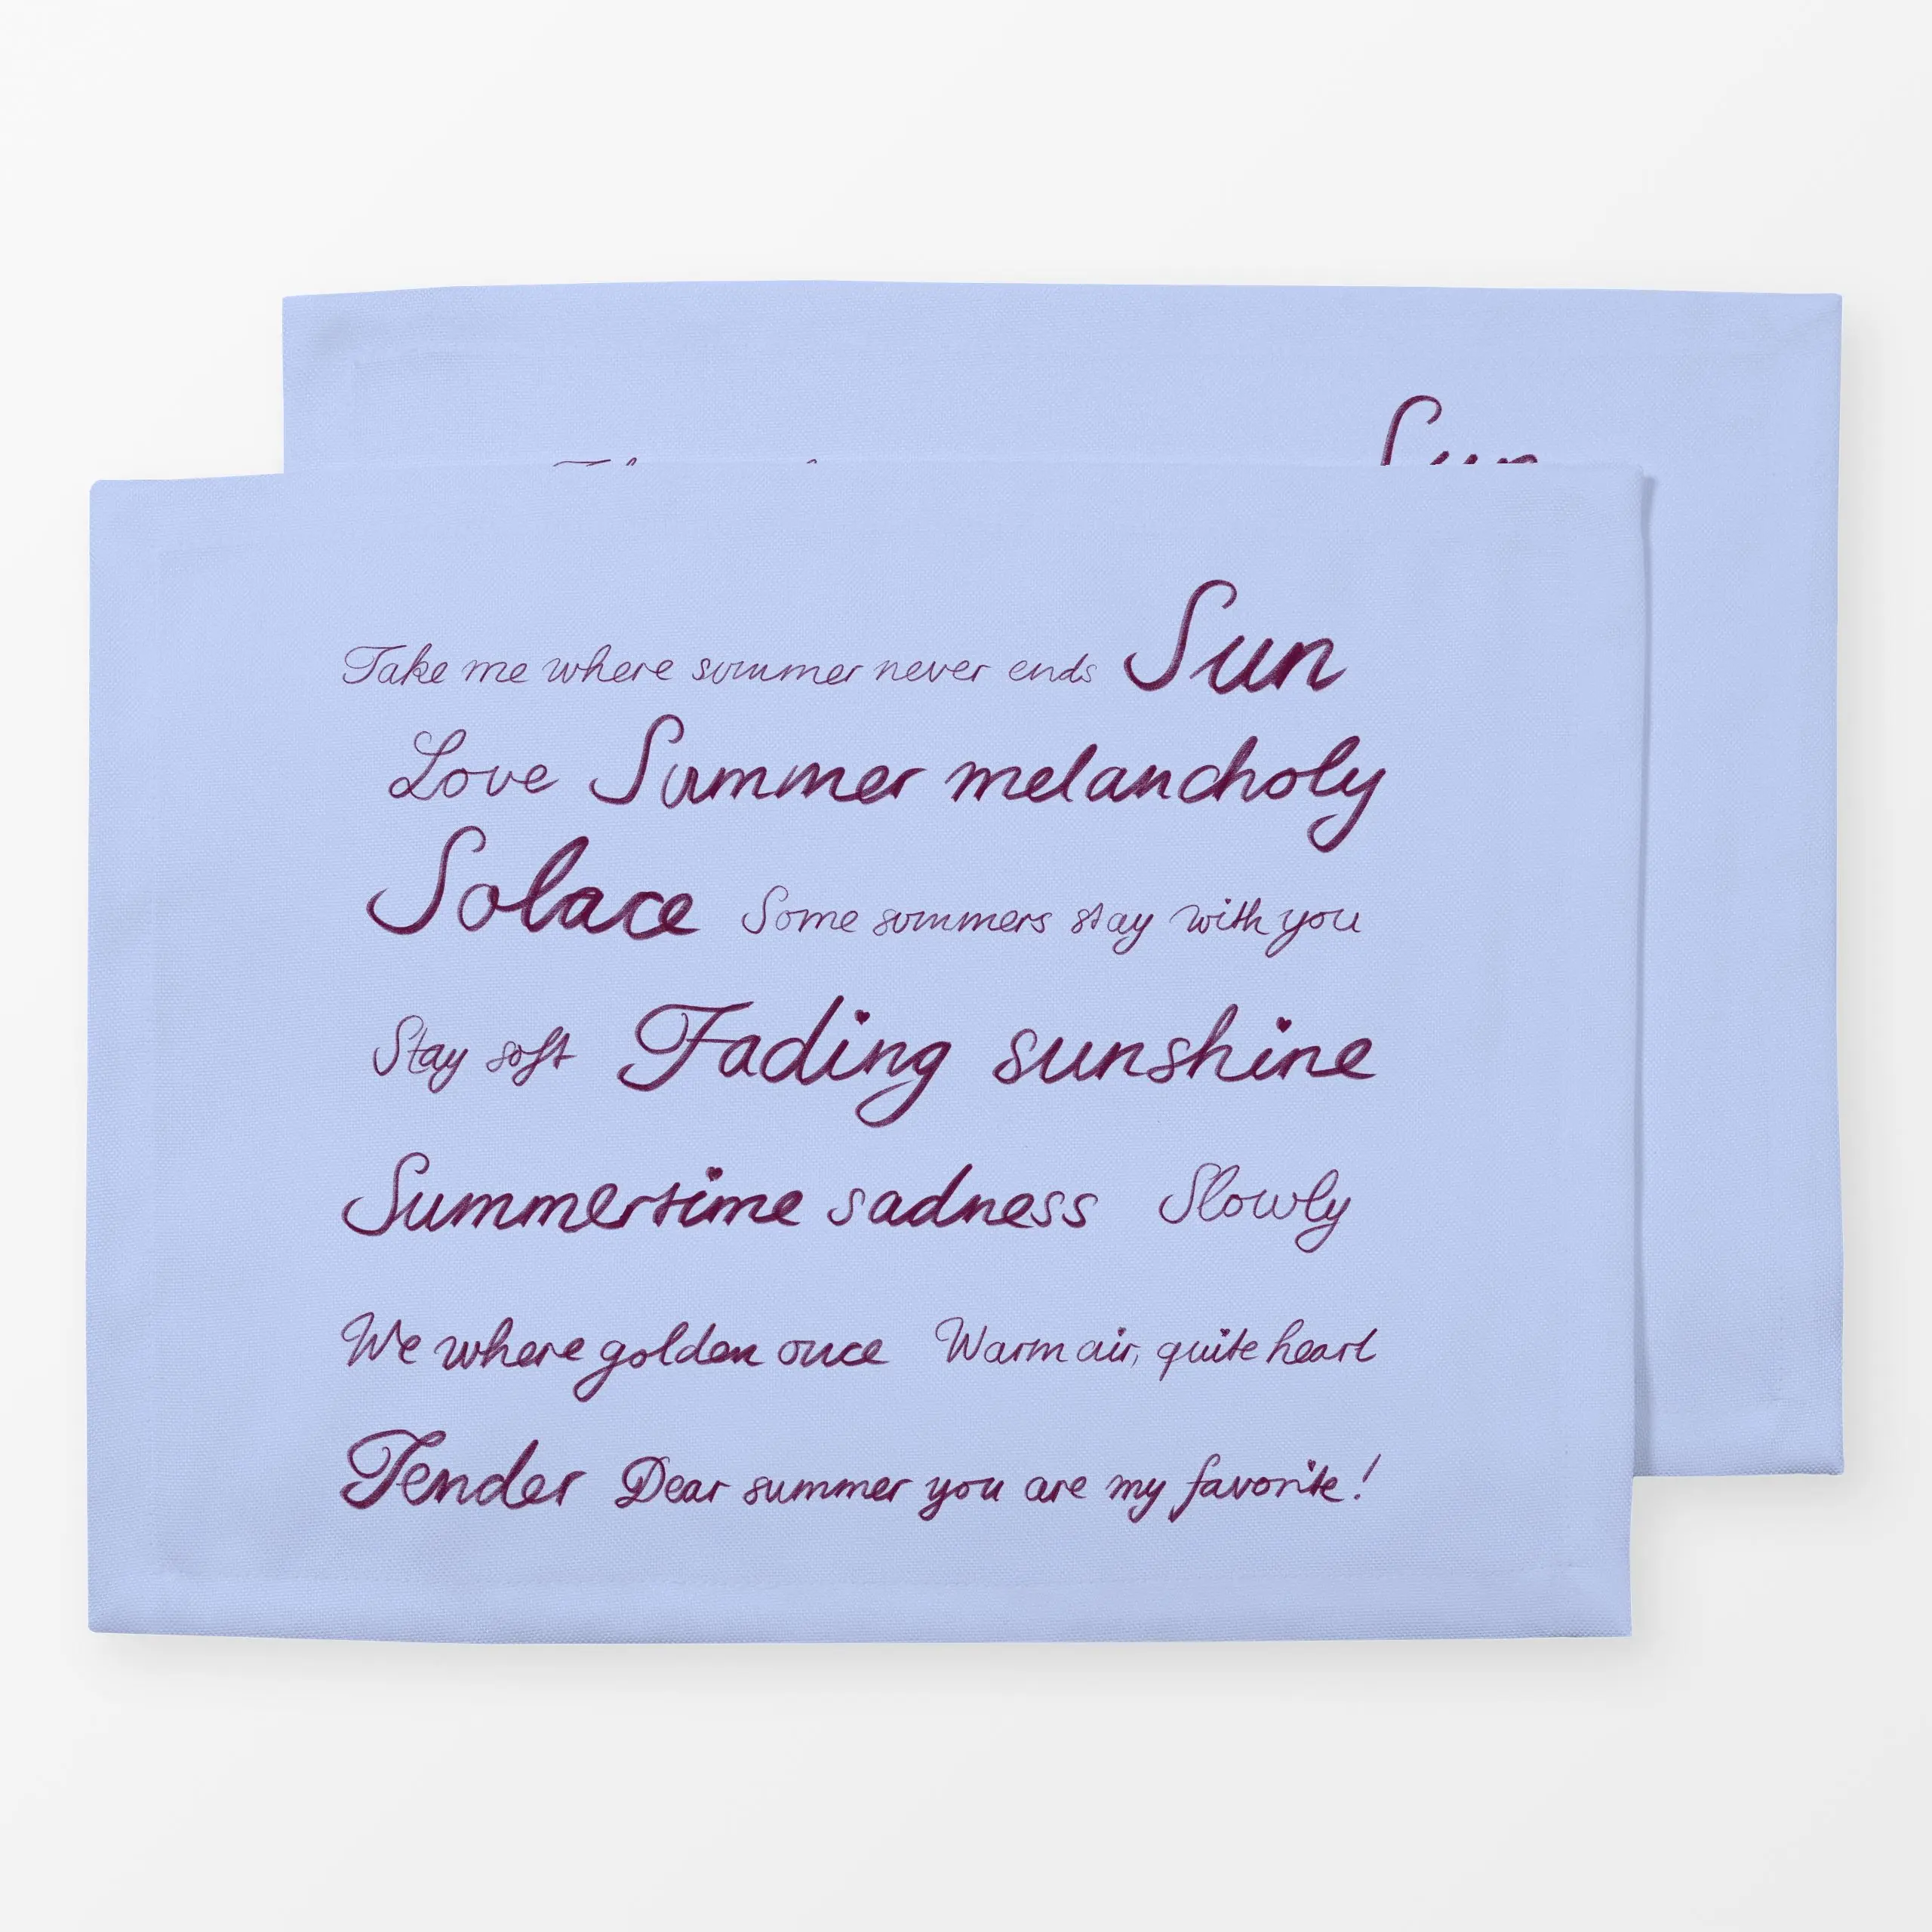 Sun
Take me where summer never ends Sun
Love Summer melancholy
Solace Some summers stay with you
Stay soft Fading sunshine
Summertime sadness Slowly
We where golden once Warm air, quite heart
Tender Dear summer you are my favorite!